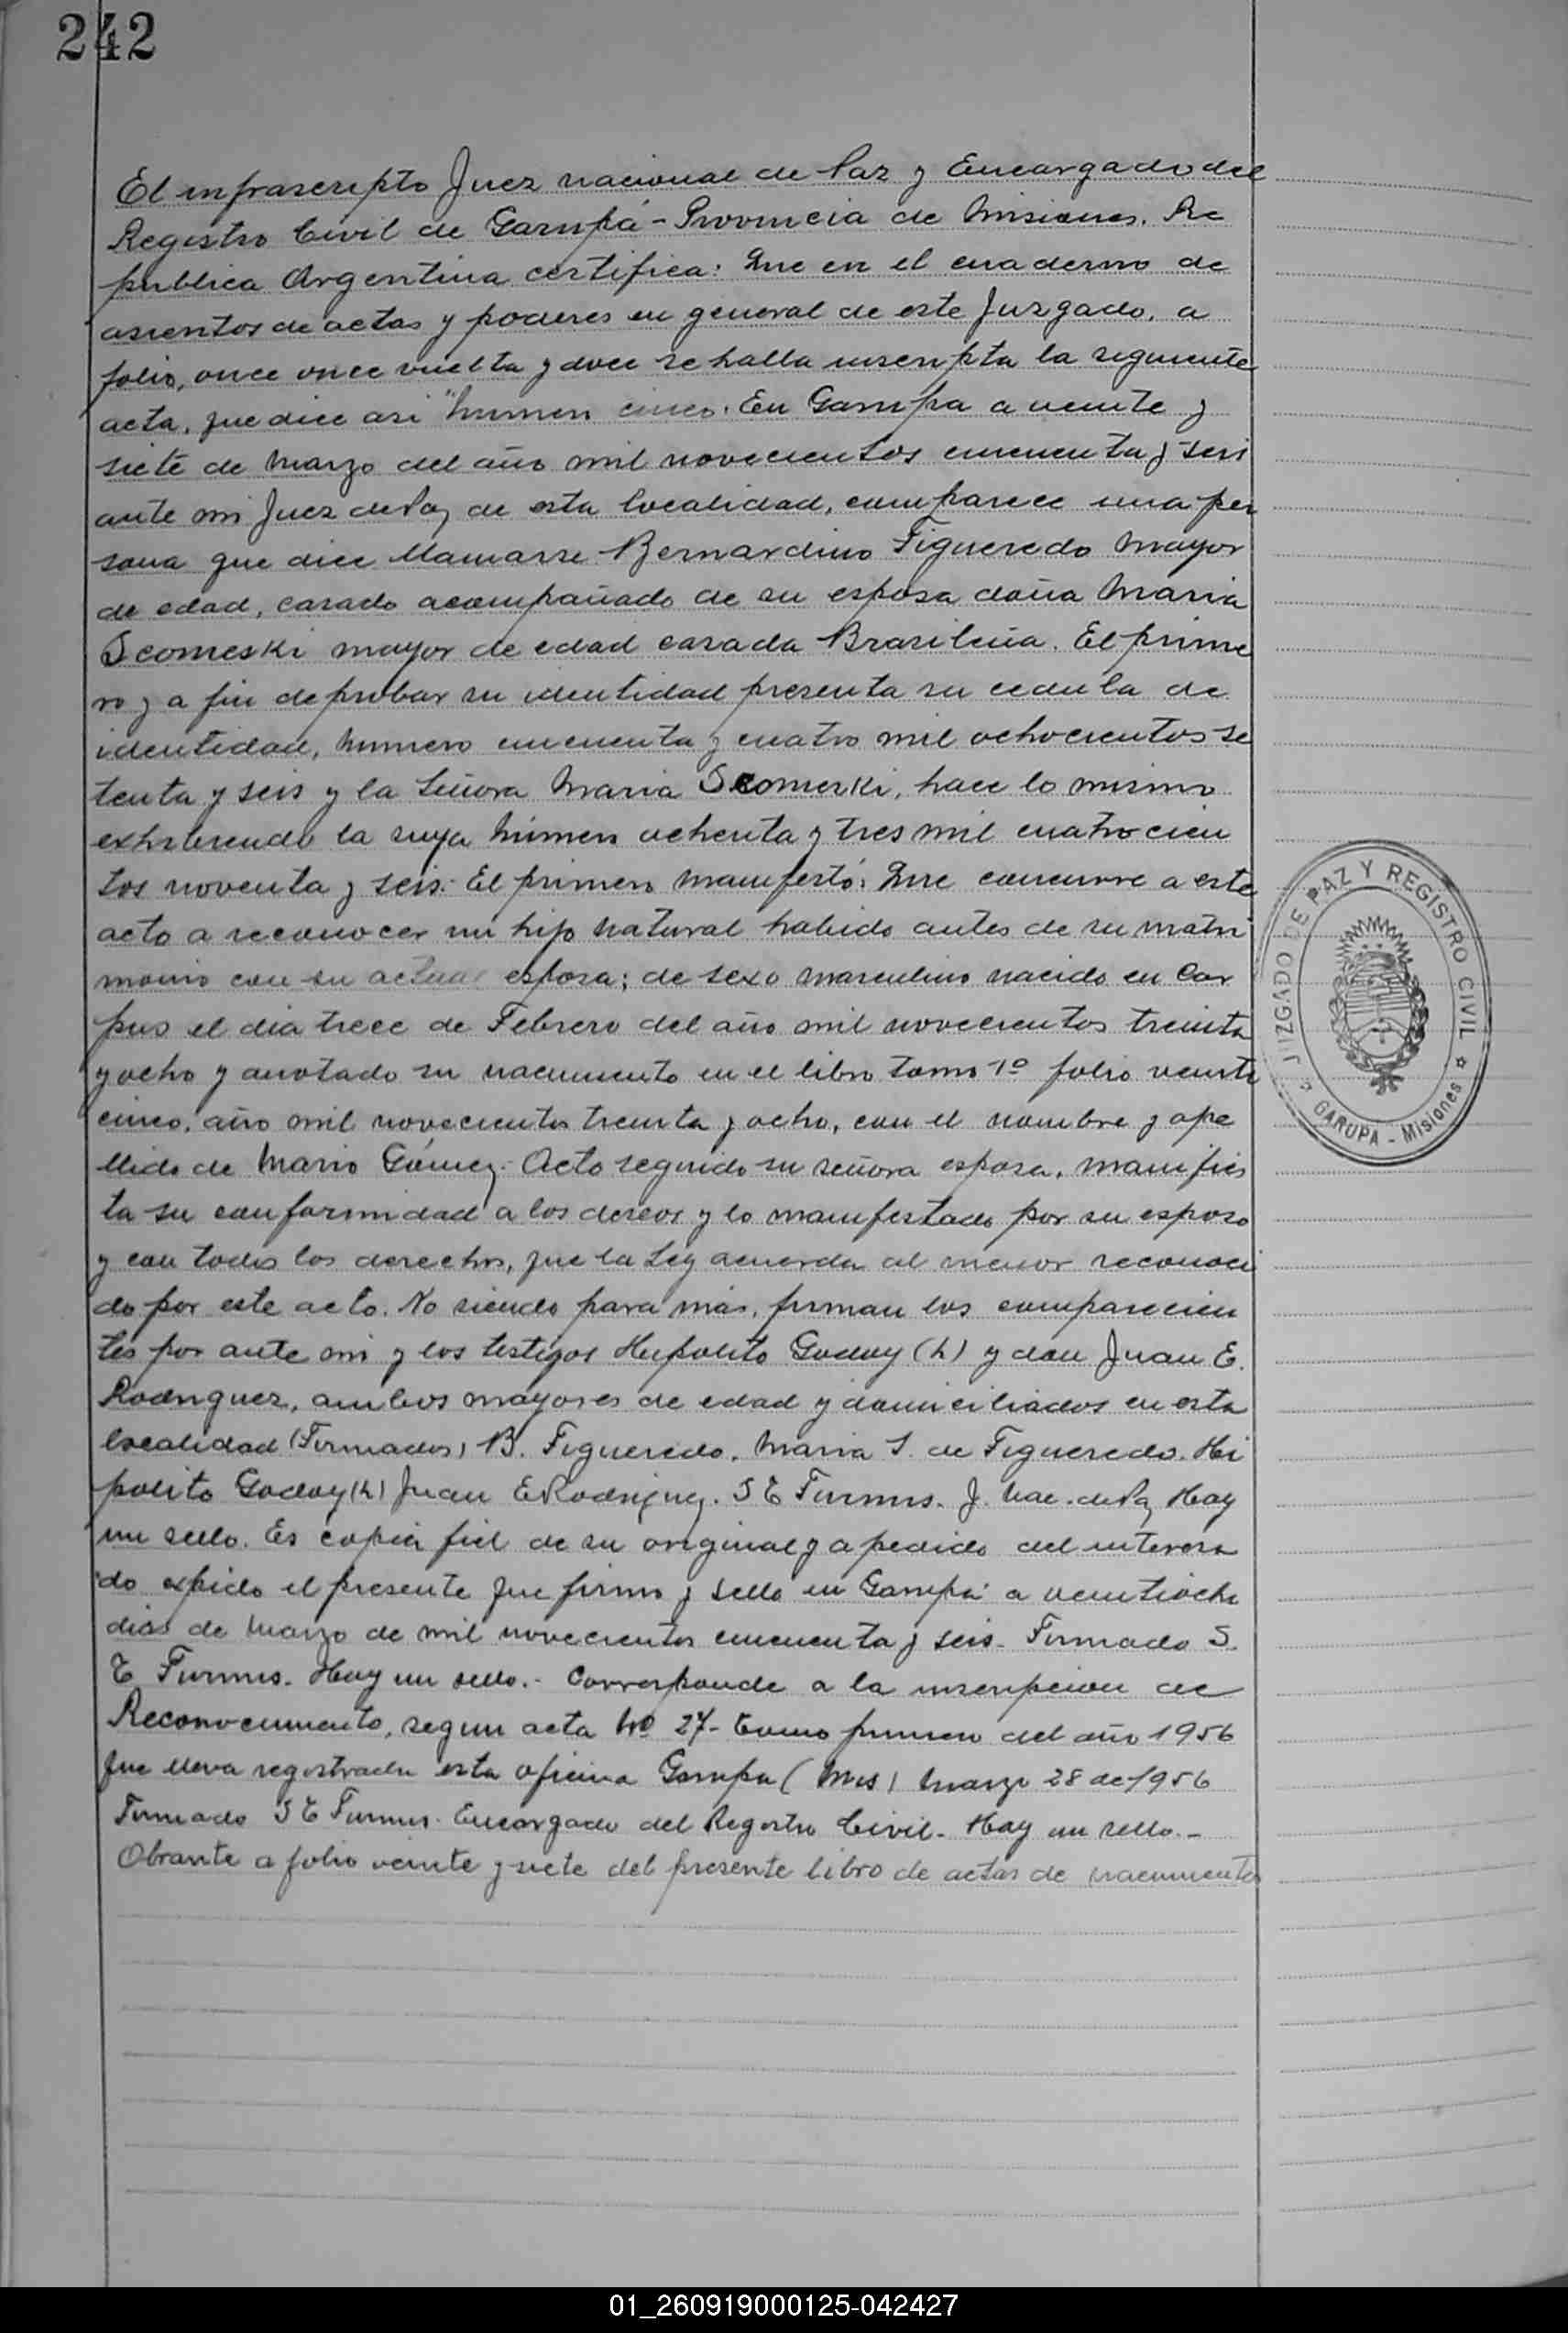 242
El infrascripto Juez nacional de Paz y Encargado del
Registro Civil de Garupá - Provincia de Misiones. Re
publica Argentina certifica: Que en el cuaderno de
asientos de actas y poderes en general de este Juzgado, a
folio, once once vuelta y doce se halla inscripta la siguiente
acta, que dice asi "Numero cinco. En Garupa a veinte y
siete de Marzo del año mil novecientos cincuenta y seis
ante mi Juez de Paz de esta localidad, comparece una per
sona que dice llamarse Bernardino Figueredo Mayor
de edad, casado acompañado de su esposa doña Maria
Scomeski mayor de edad casada Brasileña. El prime
ro y a fin de probar su identidad presenta su cedula de
identidad, Numero cincuenta y cuatro mil ochocientos se
tenta y seis y la Señora Maria Scomerki, hace lo mismo
exhibiendo la suya Número ochenta y tres mil cuatrocien
tos noventa y seis.- El primero Manifestó: Que concurre a este
acto a reconocer un hijo Natural habido antes de su matri
monio con su actual esposa; de sexo masculino nacido en Cor
pus el dia trece de Febrero del año mil novecientos treinta
y ocho y anotado su nacimiento en el libro tomo 1º folio veinti
cinco, año mil novecientos treinta y ocho, con el nombre y ape
llido de Mario Gómez. Acto seguido su señora esposa, manifies
ta su conformidad a los deseos y lo manifestado por su esposo
y con todos los derechos, que la Ley acuerda al menor reconoci
do por este acto. No siendo para más, firman los comparecien
tes por ante mi y los testigos Hipolito Godoy (h) y don Juan E.
Rodriguez, ambos mayores de edad y domiciliados en esta
localidad (Firmados) B. Figueredo. Maria S. de Figueredo. Hi
polito Godoy (h) Juan E Rodriguez. S E J. Nac. de Paz Hay
un sello. Es copia fiel de su original y a pedido del interesa
do expido el presente que firmo y sello en Garupá a veintiocho
dias de Marzo de mil novecientos cincuenta y seis. Firmado S.
E Hay un sello.- Corresponde a la inscripcion de
Reconocimiento, segun acta Nº 27- Tomo primero del año 1956
que lleva registrada esta oficina Garupa (Mis) Marzo 28 de 1956
Firmado S E Encargado del Registro Civil. Hay un sello.-
Obrante a folio veinte y siete del presente libro de actas de nacimientos
JUZGADO DE PAZ Y REGISTRO CIVIL
GARUPA - Misiones
01_260919000125-042427